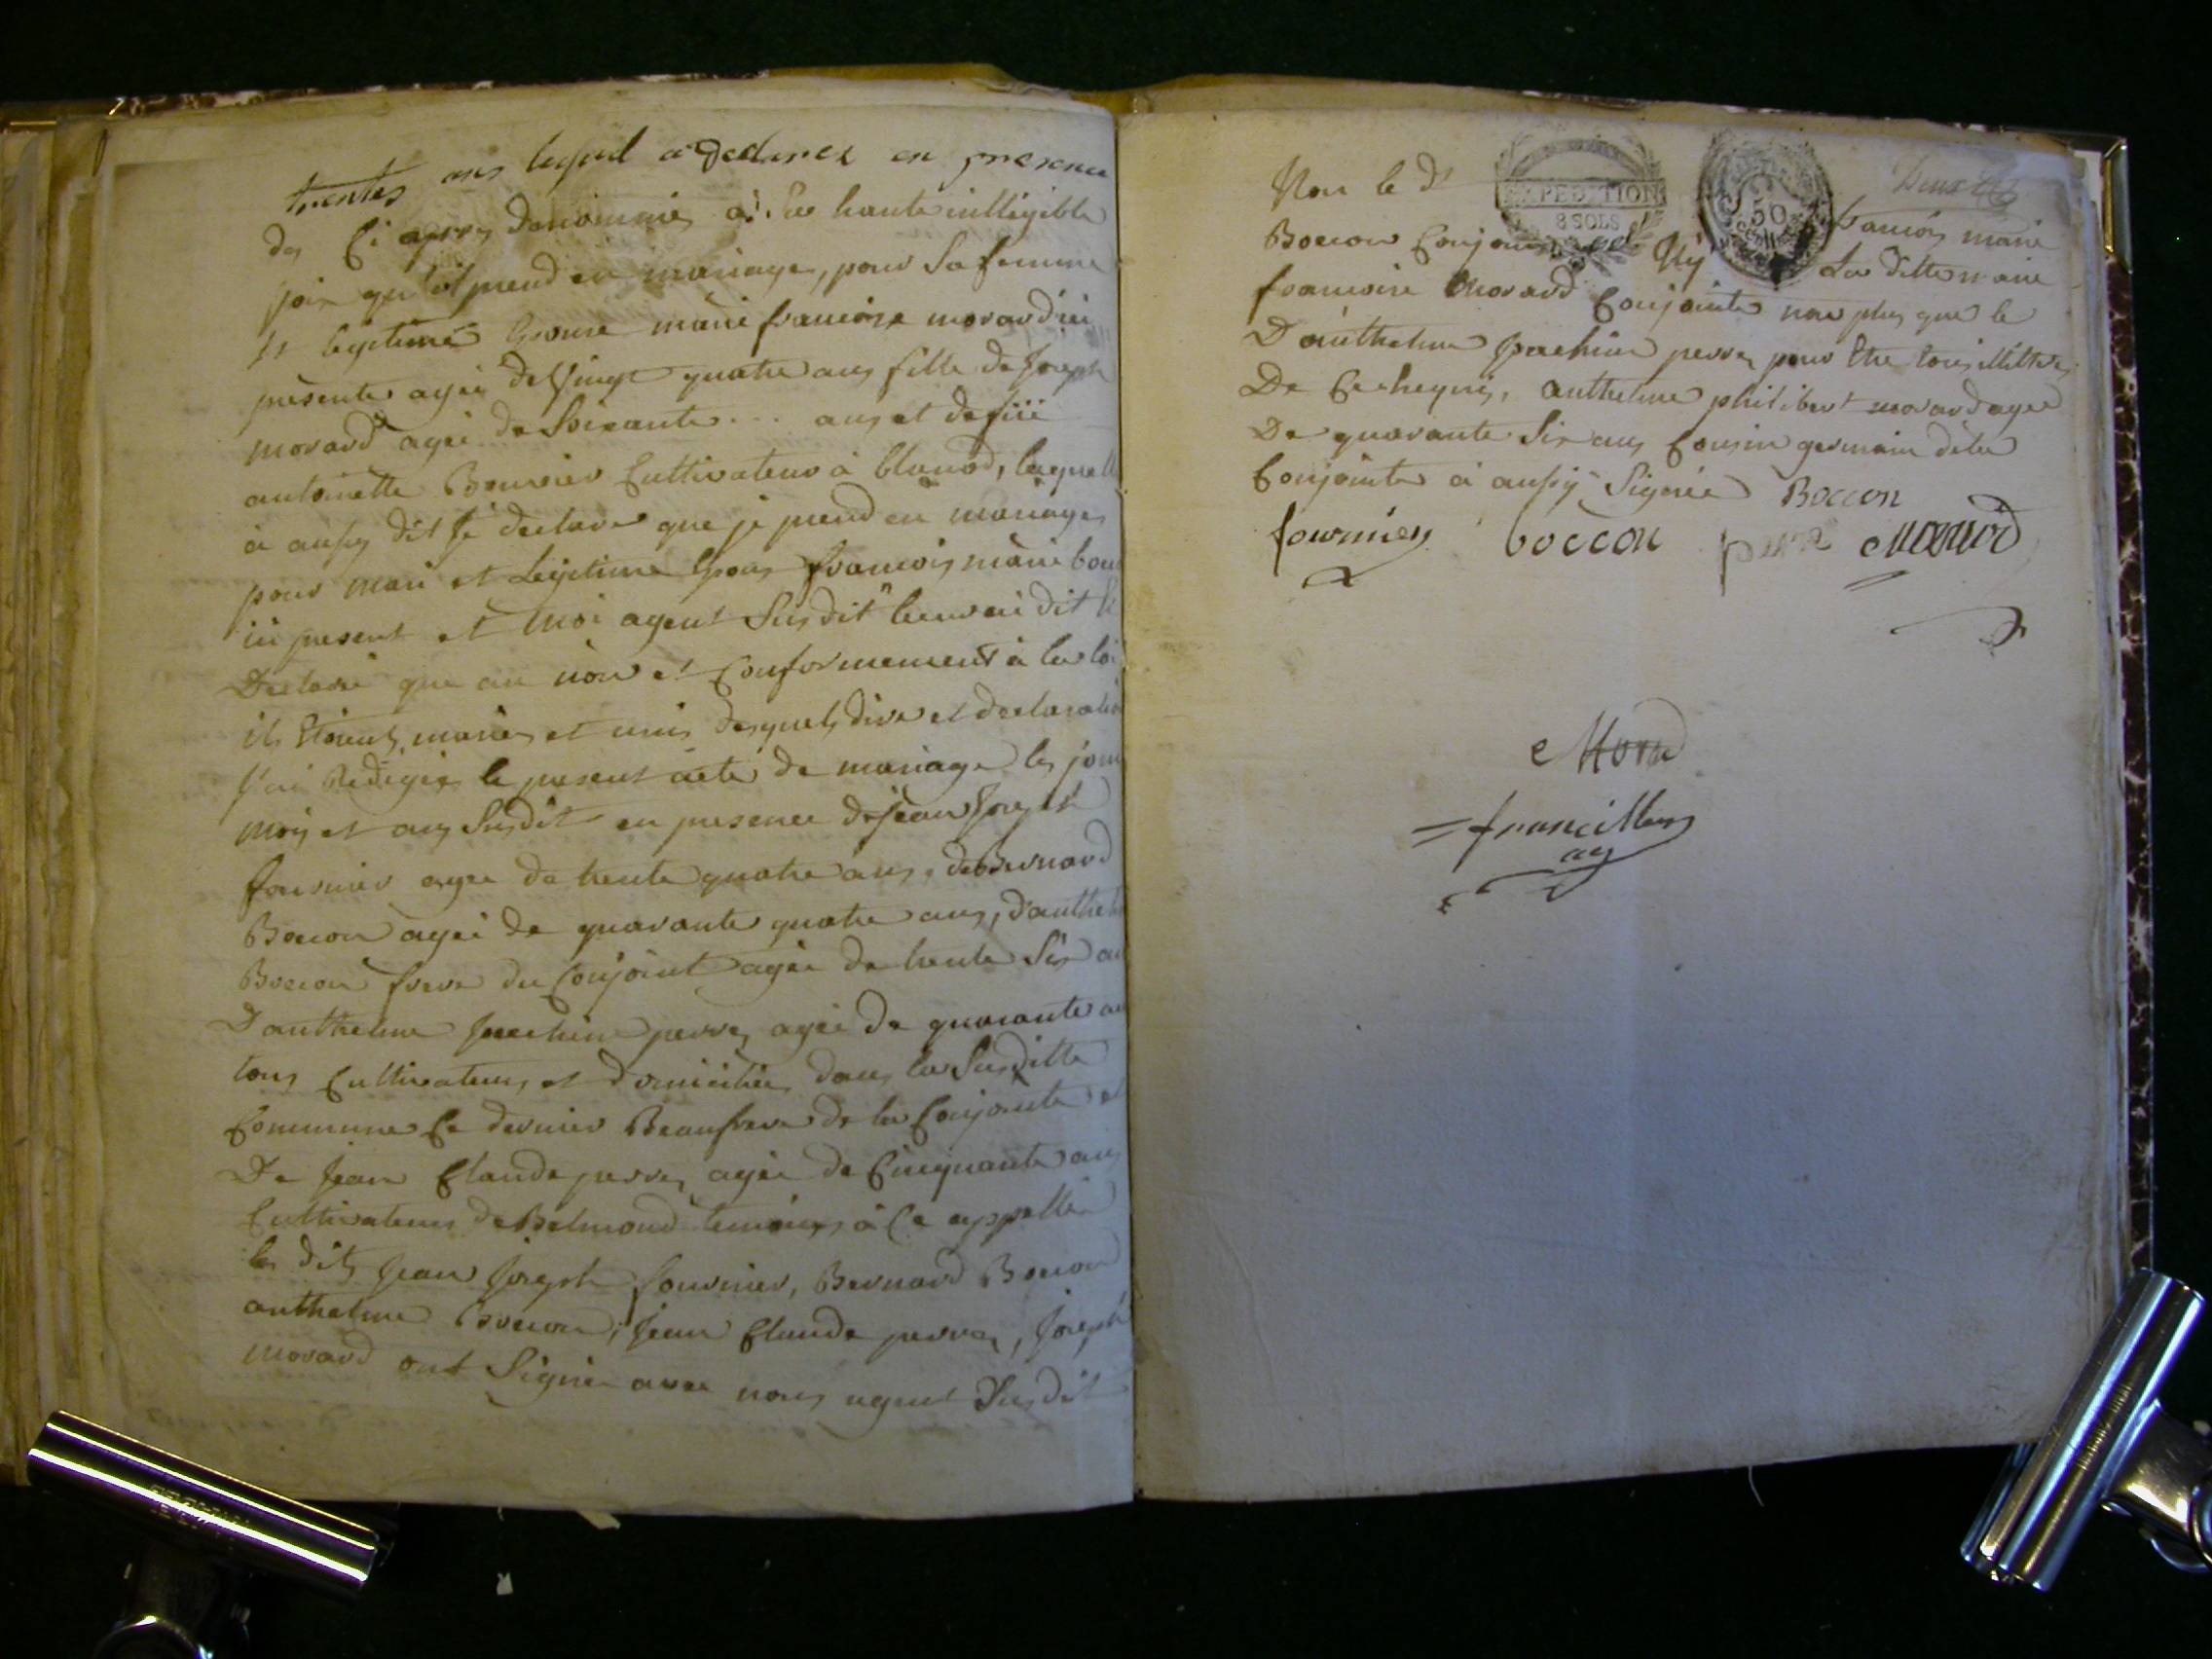 trentes ans lequel a declarez en presence
des ci apres denommes à haute intelligible
joix qu'il prend en mariage, pour sa femme
et legitime epouse marie francoise morard ici
presente agée de vingt quatre ans fille de Joseph
morard agée de Soixante ... ans et de feüe
antoinette Bouvier Cultivateur à blanod, laquelle
à aussy dit je declare que je prend en mariage
pour mari et legitime Epous francois marie bou
ici present et moi agent Susdit leur ai dit et
Declaré que au nom et Conformement à la loi
ils Etoient mariés et unis desquels dire et declaratio
J'ai Redigée le present acte de mariage les jour
mois et ans Susdit en presence de jean Joseph
fournier agée de trente quatre ans, de Bernard
Bocion agée de quarante quatre ans, d'anthel
Bocion frere du Conjoint agée de trente Six an
D'anthelme perre agée de quarante an
tous Cultivateurs et domiciliés dans la Susditte
Commune Ce dernier Beaufrere de la Conjointe et
De Jean Claude perre agée de Cinquante ans
Cultivateurs de Belmond temoins à Ce appellée
les dits Jean Joseph fournier, Bernard Bocion
anthelme Bocion, Jean Claude perre, Joseph
morard ont Signée avec nous agent Susdit
Non le dt francois marie
EXPEDITION
8 SOLS
50
Bocion Conjoint Ny La ditte marie
francoise Morard Conjointe non plus que le
D'anthelme perre pour Etre tous illittrés
De Ce Requis, anthelme philibert morard agée
De quarante Six ans Cousin germain de la
Conjointe à aussy Signée Boccon
fournier boccon perre Morard
Morard
francillon
ag